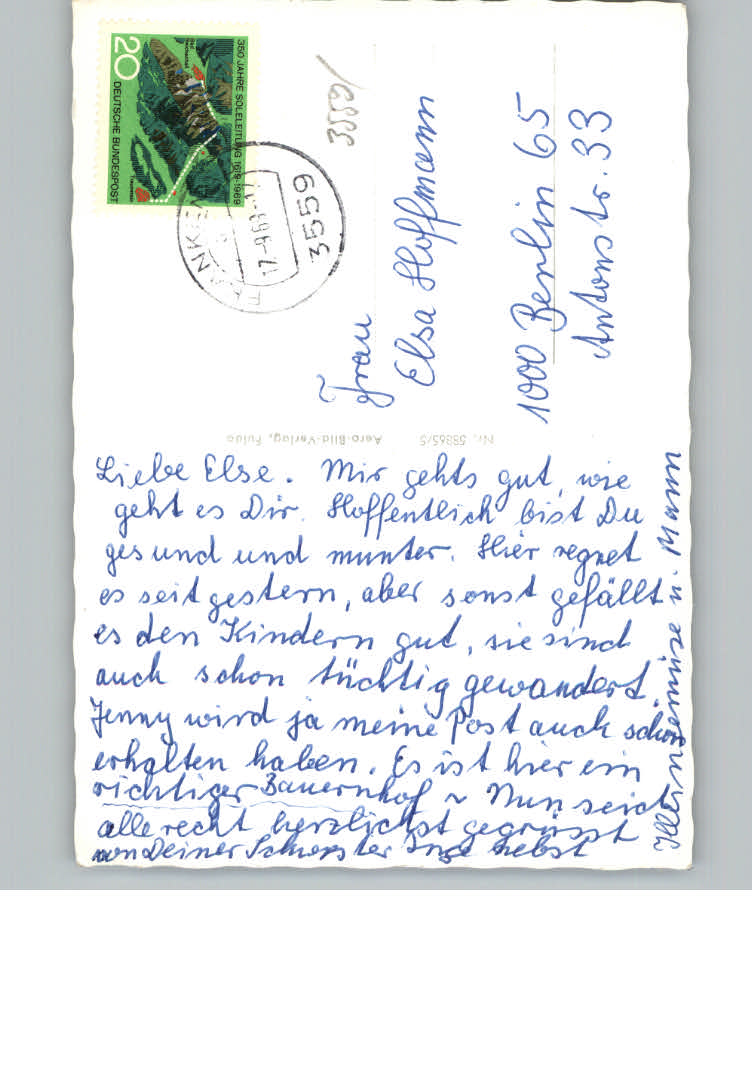 Liebe Else. Mir gehts gut, wie
geht es Dir. Hoffentlich bist Du
gesund und munter. Hier regnet
es seit gestern, aber sonst gefällt
es den Kindern gut, sie sind
auch schon tüchtig gewandert.
Jenny wird ja meine Post auch schon
erhalten haben. Es ist hier ein
richtiger Bauernhof ~ Nun seid
alle recht herzlichst gegrüsst
von Deiner Schwester Inge nebst
u. Mann
Frau
Elsa Hoffmann
1000 Berlin 65
Antonstr. 33
Nr. 58865/5 Aero-Bild-Verlag, Fulda
350 JAHRE SOLELEITUNG 1619-1969
Traunstein
20
DEUTSCHE BUNDESPOST
3559